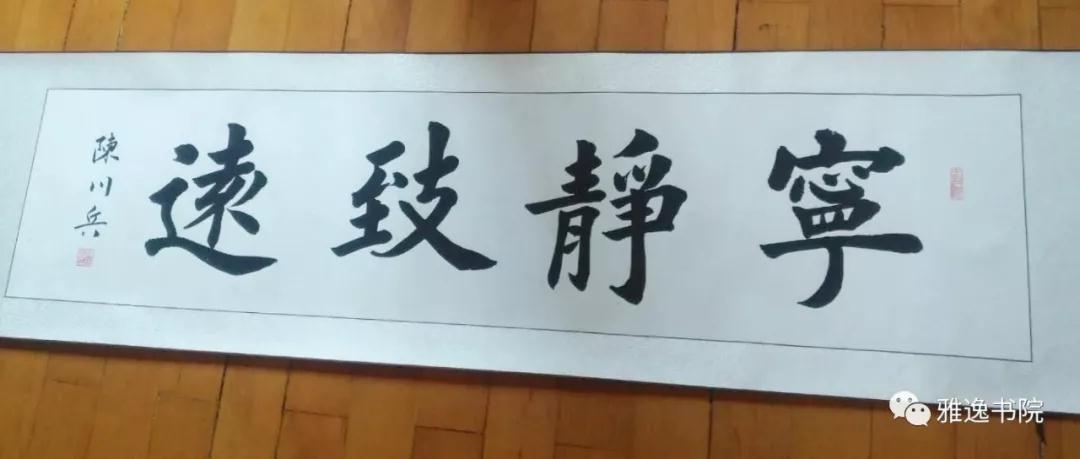 寧靜致遠
陳川兵
雅逸书院